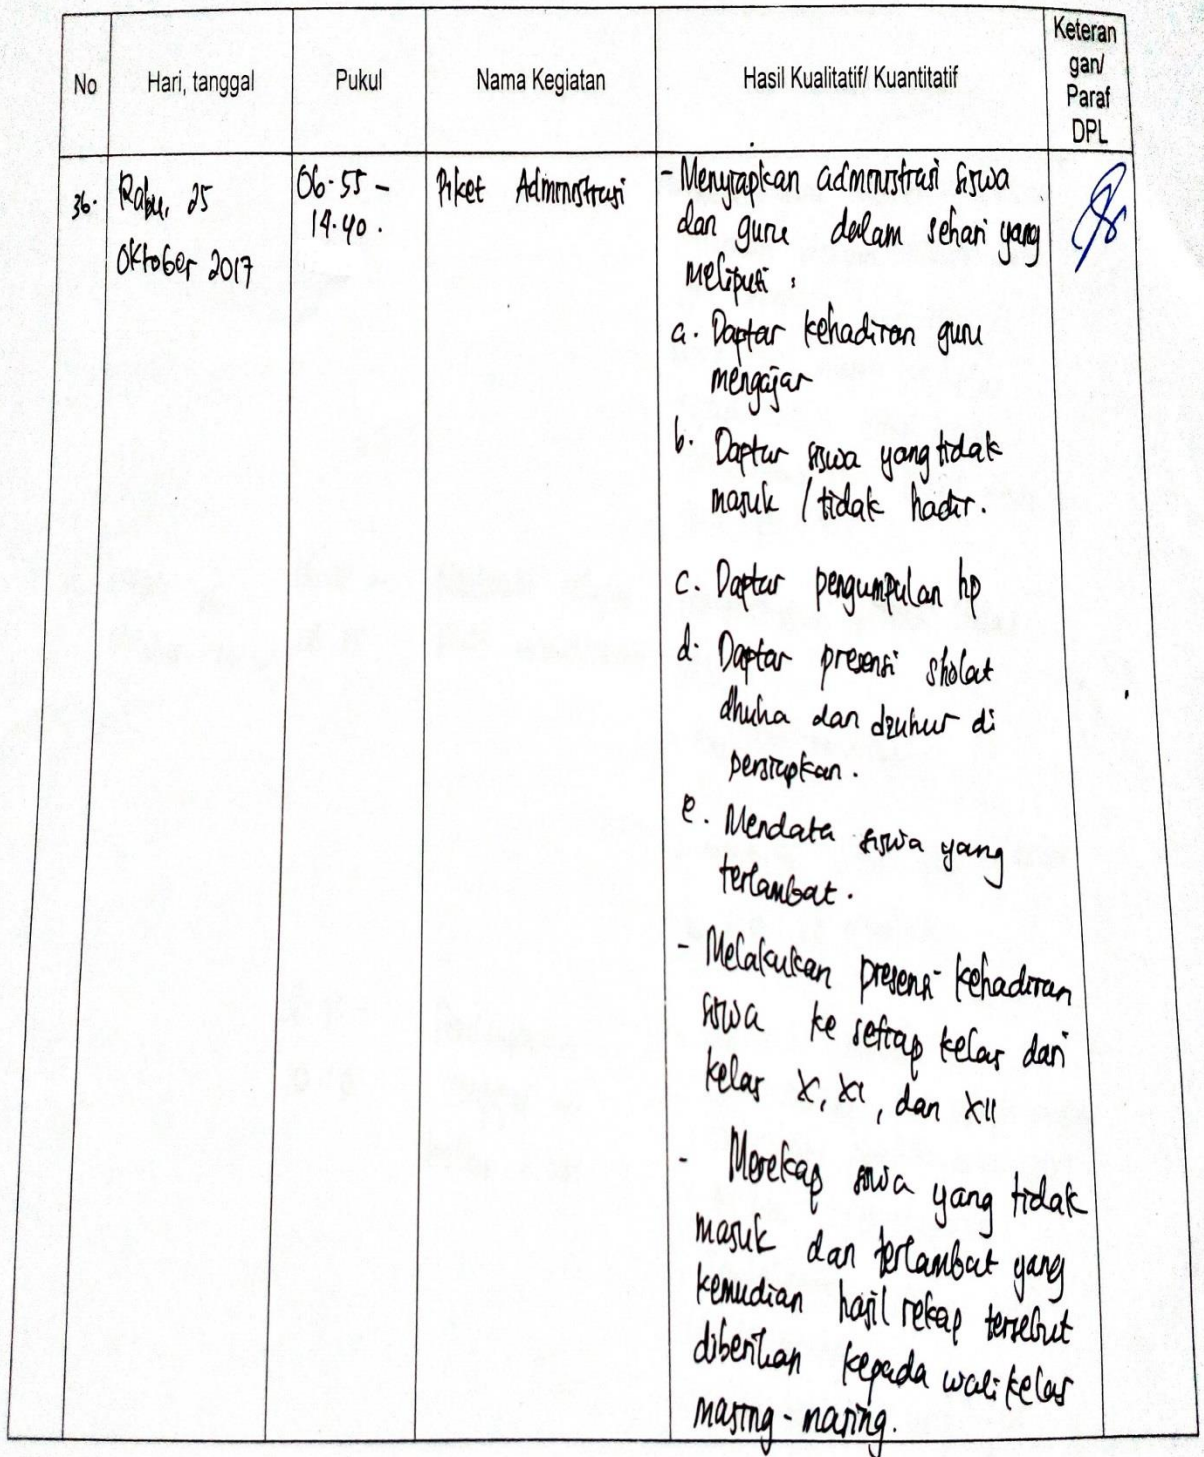 No
Hari, tanggal
Pukul
Nama Kegiatan
Hasil Kualitatif/ Kuantitatif
Keteran
gan/
Paraf
DPL
36.
Rabu, 25
Oktober 2017
06.55 -
14.40.
Piket Administrasi
- Menyiapkan administrasi siswa
dan guru dalam sehari yang
meliputi :
a. Daptar kehadiran guru
mengajar
b. Daptar siswa yang tidak
masuk / tidak hadir.
c. Daptar pengumpulan hp
d. Daptar presensi sholat
dhuha dan dzuhur di
persiapkan.
e. Mendata siswa yang
terlambat.
- Melakukan presensi kehadiran
siswa ke setiap kelas dari
kelas X, XI, dan XII
- Merekap siswa yang tidak
masuk dan terlambat yang
kemudian hasil rekap tersebut
diberikan kepada wali kelas
masing-masing.